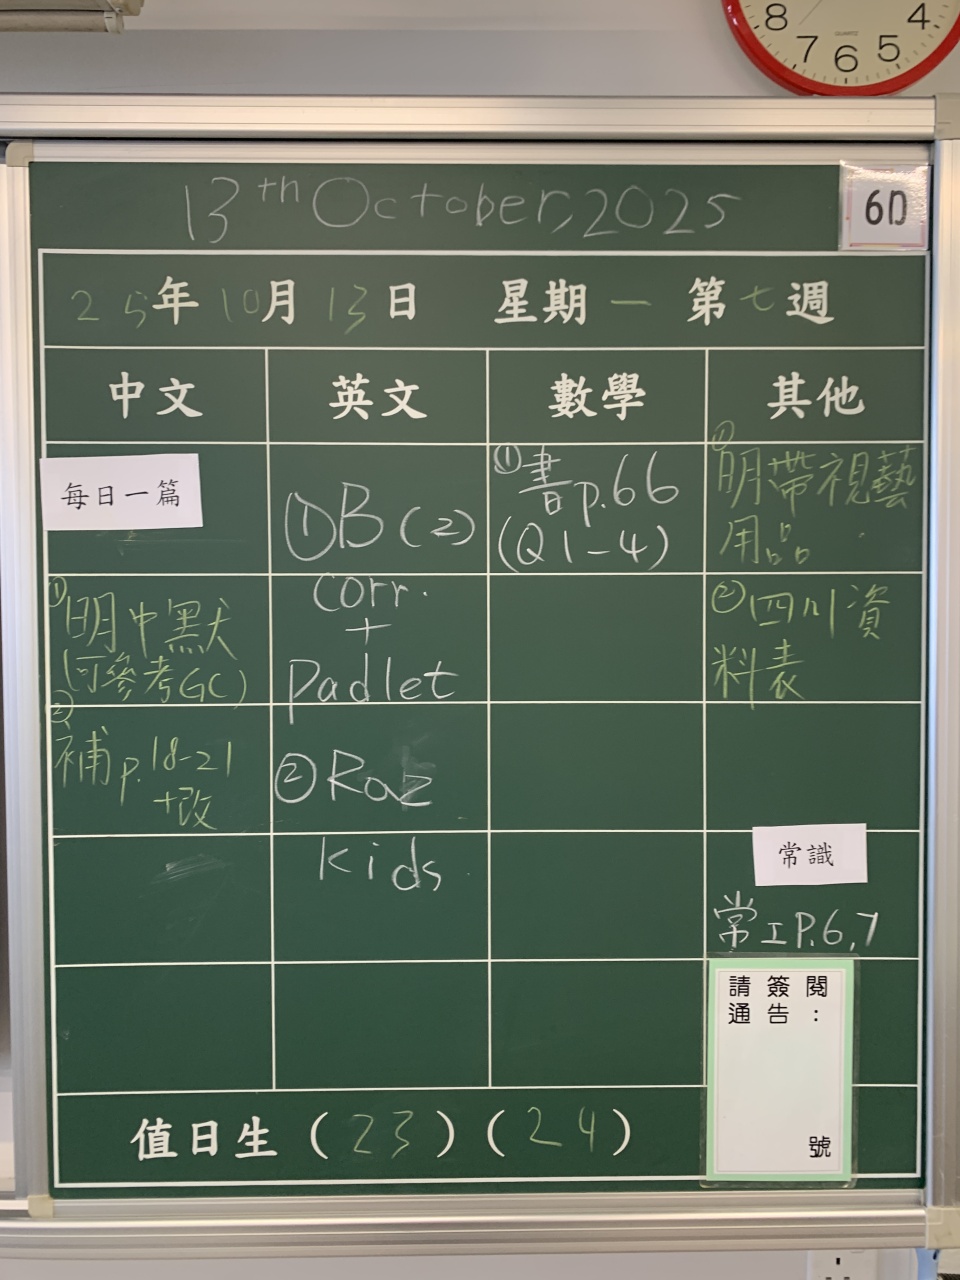 8 7 6 5 4
QUARTZ
13th October, 2025
6D
25年10月13日 星期一 第七週
中文 英文 數學 其他
每日一篇
①明中默
(可參考GC)
②補p.18-21
+改
①DB(2)
corr.
+
Padlet
②Raz
kids
①書p.66
(Q1-4)
①明帶視藝
用品
②四川資
料表
常識
常工P.6,7
請簽閱
通告:
號
值日生(23)(24)